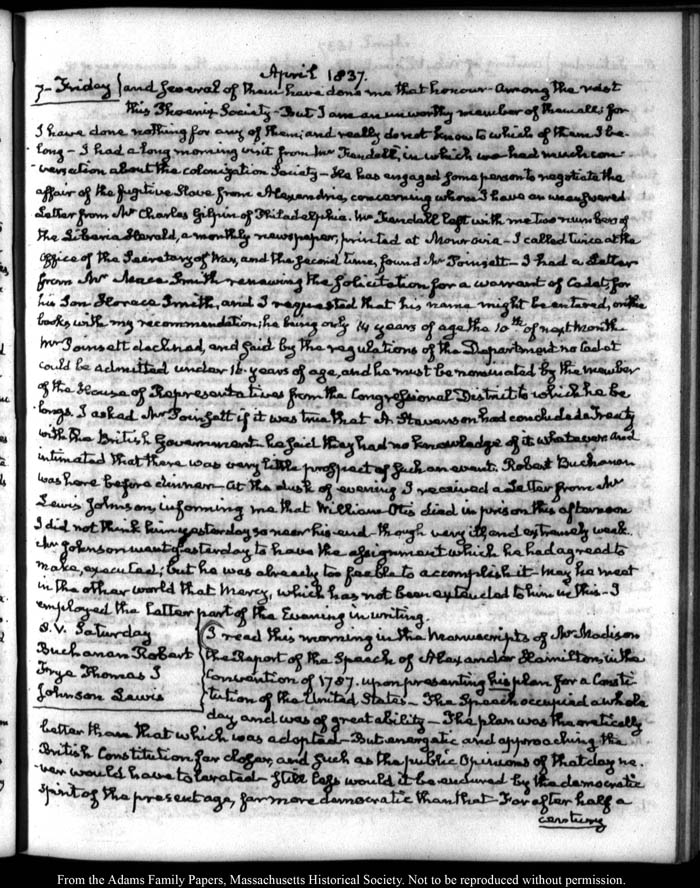 April 1837.
7- Friday} and several of them have done me that honour- Among the rest
this Phoenix Society- But I am an unworthy member of them all; for
I have done nothing for any of them; and really do not know to which of them I be-
long- I had a long morning visit from Mr Fendall, in which we had much con-
-versation about the colonization Society- He has engaged some person to negotiate the
affair of the fugitive Slave from Alexandria, concerning whom I have an unanswered
Letter from Mr Charles Gilpin of Philadelphia. Mr Fendall left with me two numbers of
the Liberia Herald, a monthly newspaper, printed at Monrovia- I called twice at the
Office of the Secretary of War, and the second time, found Mr Poinsett- I had a Letter
from Mr Smith renewing the solicitation for a warrant of Cadet, for
his Son Horace Smith, and I requested that his name might be entered, on the
books with my recommendation; he being only 14 years of age the 10th of next Month
Mr Poinsett declined, and said by the regulations of the Department no Cadet
could be admitted under 16. years of age, and he must be nominated by the member
of the House of Representatives from the Congressional District to which he be
longs. I asked Mr Poinsett if it was true that A Stevenson had concluded a Treaty
with the British Government- he said they had no knowledge of it whatever: and
intimated that there was very little prospect of such an event. Robert Buchanan
was here before dinner- At the dusk of evening I received a Letter from Mr
Lewis Johnson, informing me that William Otis died in prison this afternoon
I did not think him yesterday so near his end- though very ill, and extremely weak.
Mr Johnson went yesterday to have the assignment which he had agreed to
make, executed; but he was already too feeble to accomplish it- May he meet
in the other world that Mercy, which has not been extended to him in this- I
employed the latter part of the Evening in writing.
8. V. Saturday
Buchanan Robert
Frye Thomas I
Johnson Lewis
I read this morning in the Manuscripts of Mr Madison
the Report of the Speech of Alexander Hamilton, in the
Convention of 1787. upon presenting his plan for a Consti-
tution of the United States- The Speech occupied a whole
day, and was of great ability- The plan was theoretically
better than that which was adopted- But energetic and approaching the
British Constitution far closer, and such as the public Opinions of that day ne-
ver would have tolerated- Still less would it be endured by the democratic
spirit of the present age, far more democratic than that- For after half a
century
From the Adams Family Papers, Massachusetts Historical Society. Not to be reproduced without permission.